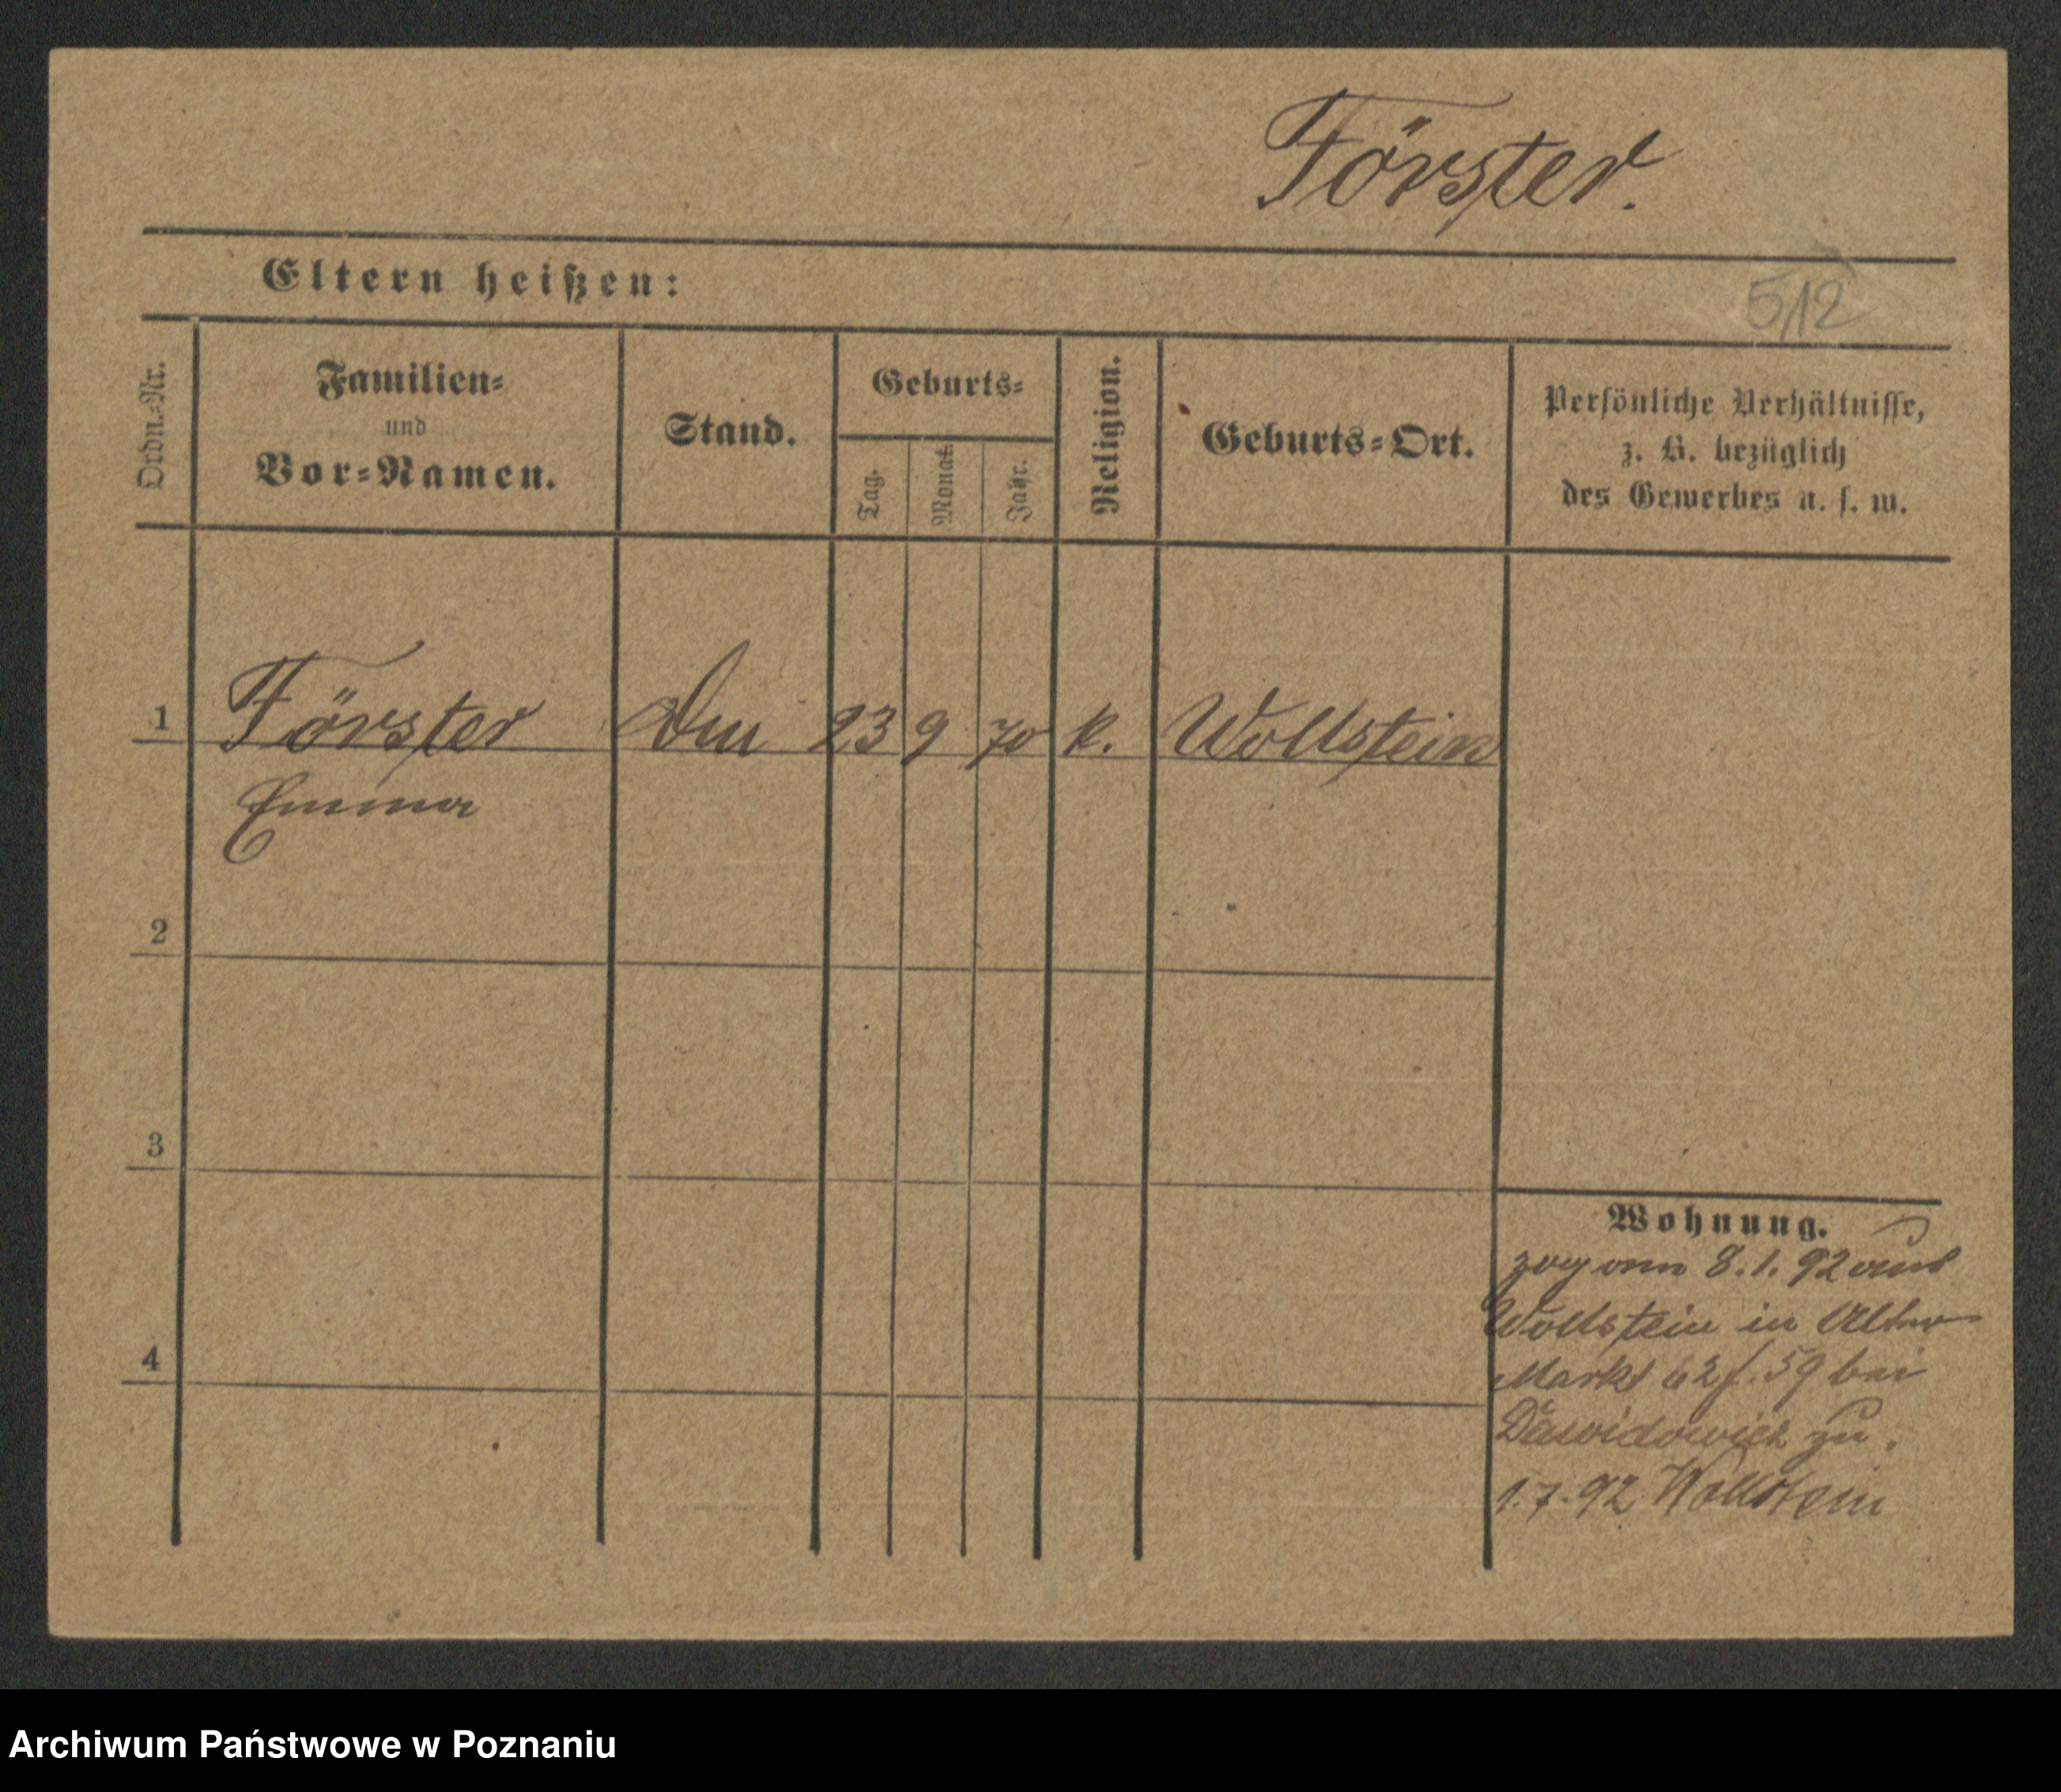 Förster.
Eltern heißen:
5/12
Ordn.-Nr.
Familien-
und
Vor-Namen.
Stand.
Geburts-
Tag.
Monat.
Jahr.
Religion.
Geburts-Ort.
Persönliche Verhältnisse,
z. B. bezüglich
des Gewerbes u. s. w.
1 Förster 23 9 70 k. Wollstein
Emma
2
3
4
Wohnung.
zog am 8.1.92 aus
Wollstein in Alter
Markt 62 f. 59 bei
Dawidowicz zu.
1.7.92 Wollstein
Archiwum Państwowe w Poznaniu